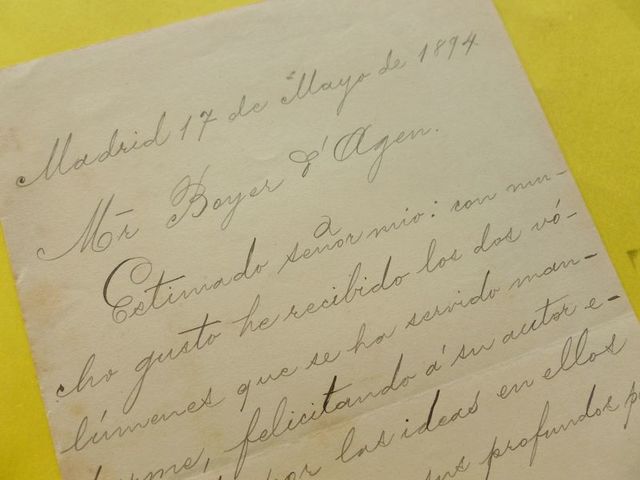 Madrid 17 de Mayo de 1894
Mr Boyer d'Agen.
Estimado señor mio: con mu-
cho gusto he recibido los dos vó-
lúmenes que se ha servido man-
darme, felicitando á su autor e-
por las ideas en ellos
sus profundos